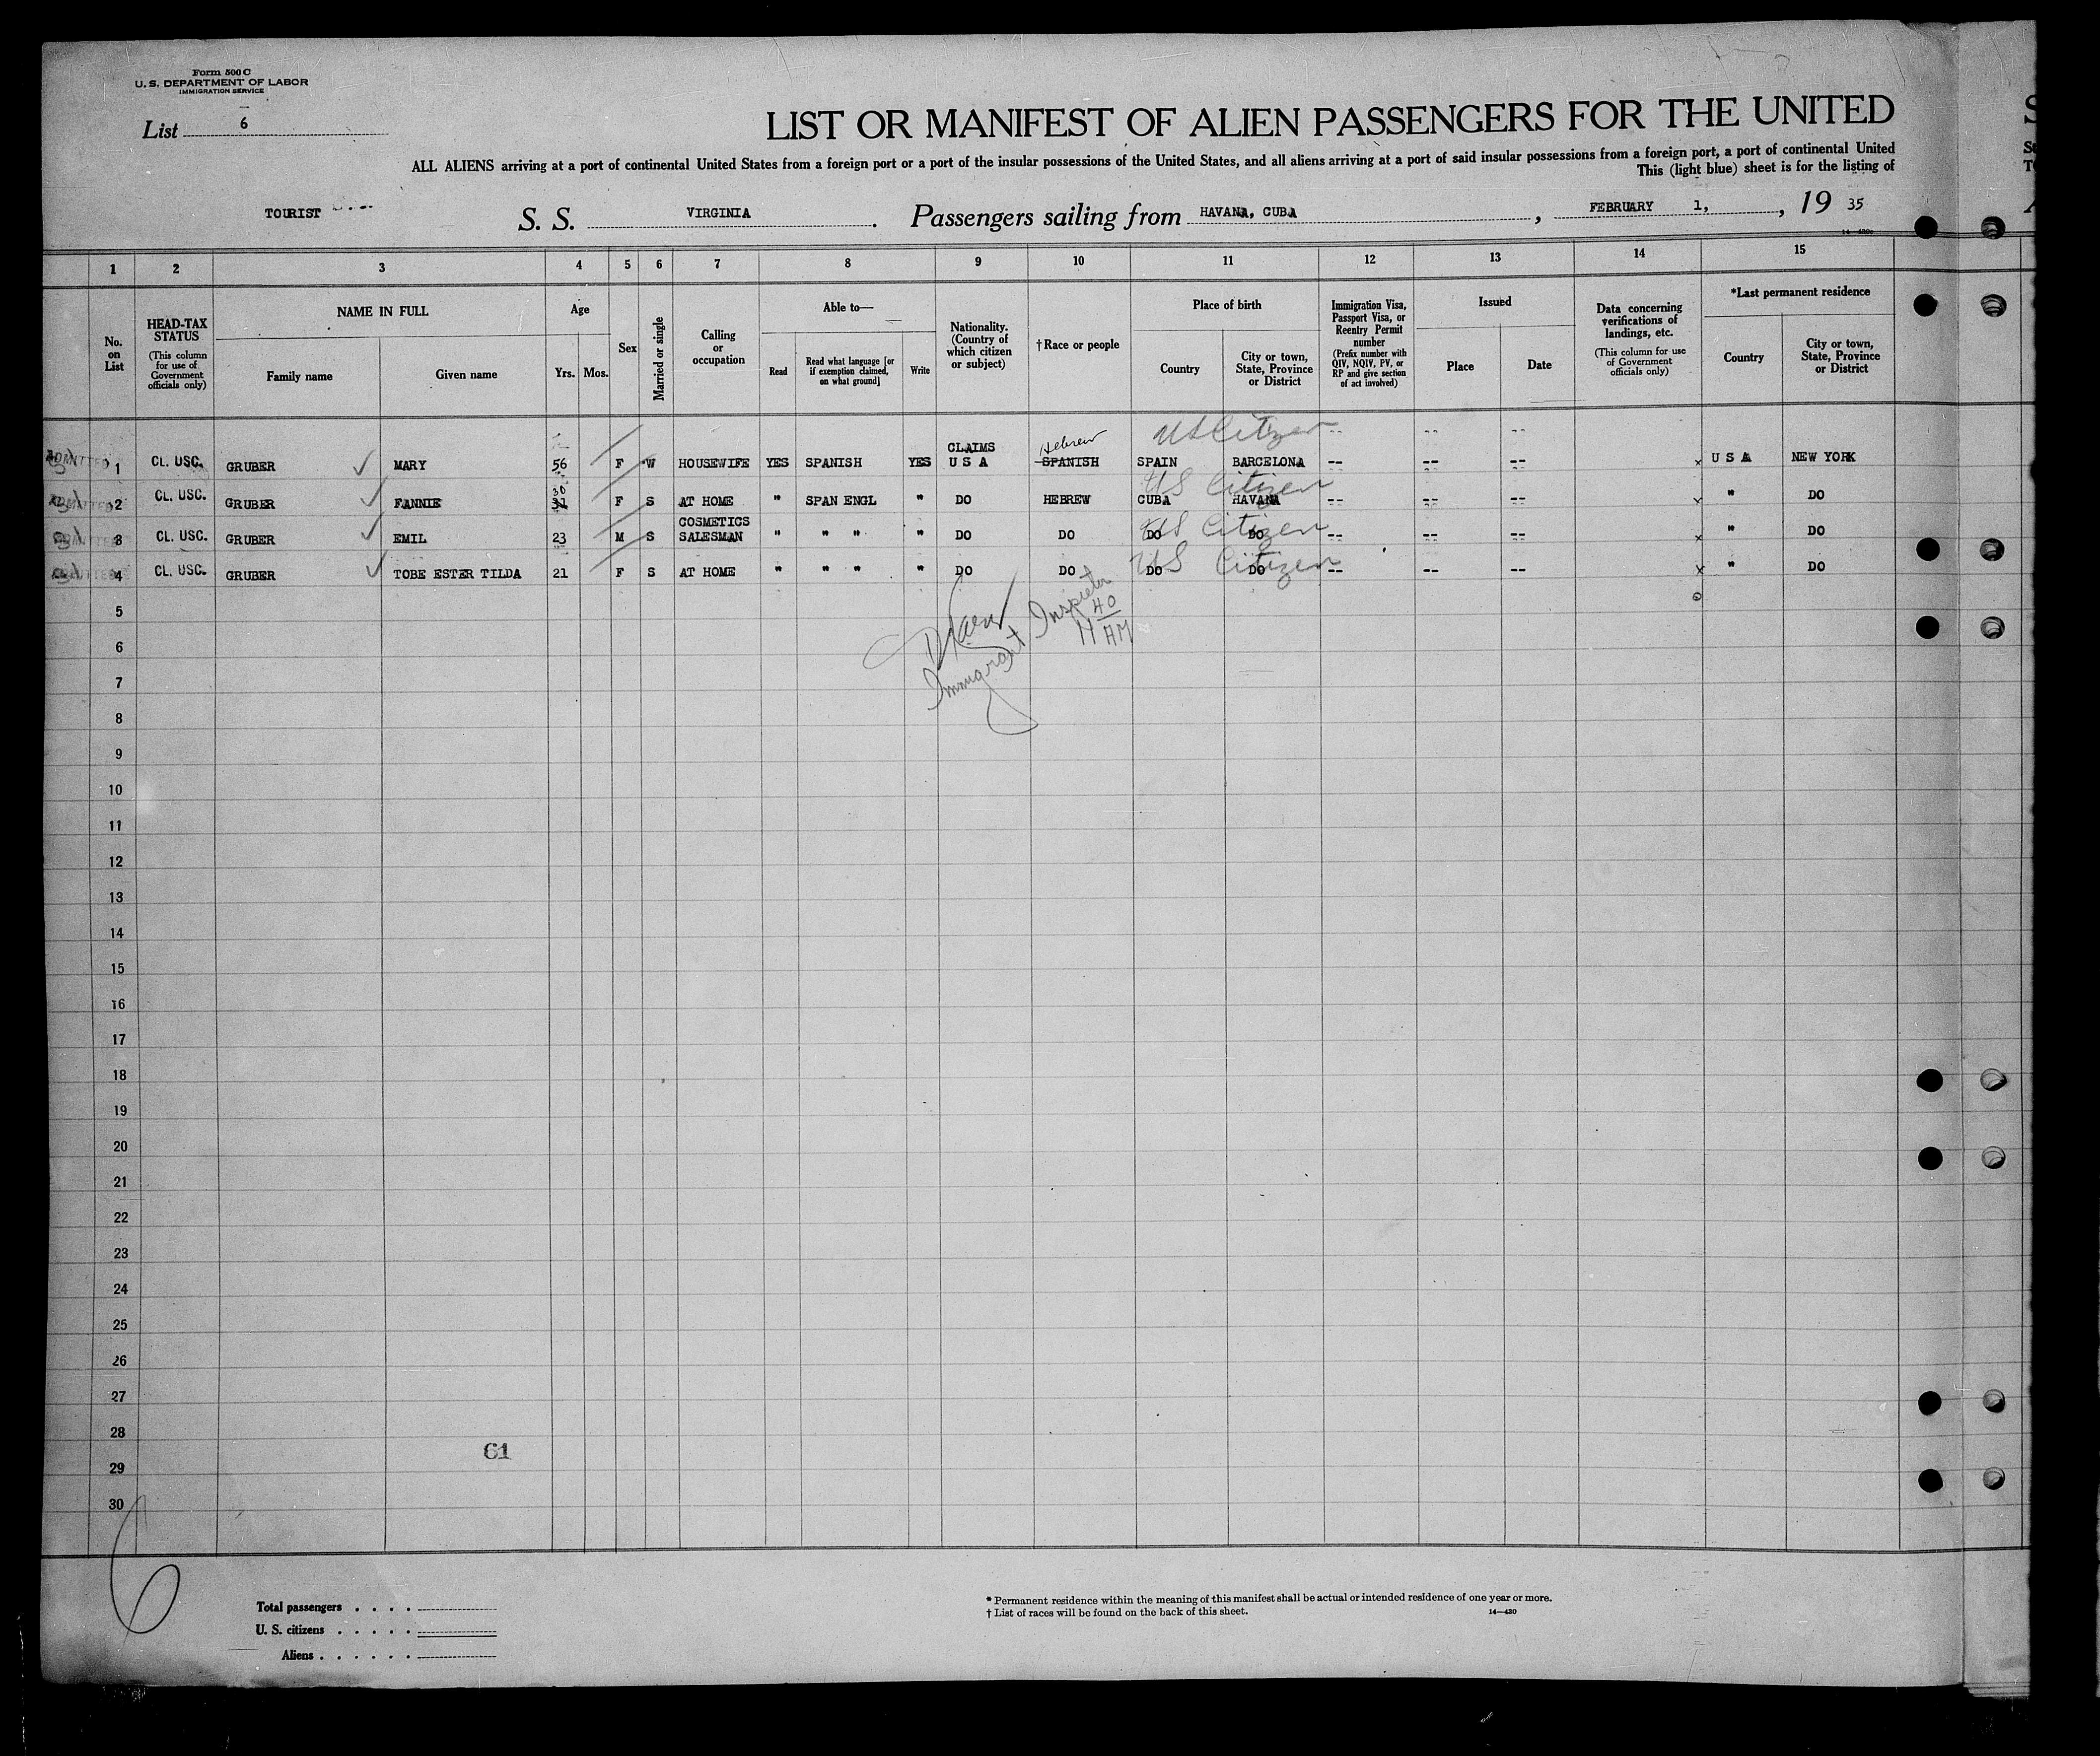 Form 500 C
U. S. DEPARTMENT OF LABOR
IMMIGRATION SERVICE
List 6
LIST OR MANIFEST OF ALIEN PASSENGERS FOR THE UNITED
ALL ALIENS arriving at a port of continental United States from a foreign port or a port of the insular possessions of the United States, and all aliens arriving at a port of said insular possessions from a foreign port, a port of continental United
This (light blue) sheet is for the listing of
TOURIST S. S. VIRGINIA. Passengers sailing from HAVANA, CUBA, FEBRUARY 1, , 19 35
1 2 3 4 5 6 7 8 9 10 11 12 13 14 15
No. on List
HEAD-TAX STATUS
(This column for use of Government officials only)
NAME IN FULL
Family name
Given name
Age
Yrs. Mos.
Sex
Married or single
Calling or occupation
Able to—
Read
Read what language [or if exemption claimed, on what ground]
Write
Nationality. (Country of which citizen or subject)
†Race or people
Place of birth
Country
City or town, State, Province or District
Immigration Visa, Passport Visa, or Reentry Permit number
(Prefix number with QIV, NQIV, PV, or RP and give section of act involved)
Issued
Place
Date
Data concerning verifications of landings, etc.
(This column for use of Government officials only)
*Last permanent residence
Country
City or town, State, Province or District
US Citizen
ADMITTED 1 CL. USC. GRUBER MARY 56 F W HOUSEWIFE YES SPANISH YES CLAIMS U S A SPANISH Hebrew SPAIN BARCELONA -- -- -- x U S A NEW YORK
US Citizen
ADMITTED 2 CL. USC. GRUBER FANNIE 31 30 F S AT HOME " SPAN ENGL " DO HEBREW CUBA HAVANA -- -- -- x " DO
US Citizen
3 CL. USC. GRUBER EMIL 23 M S COSMETICS SALESMAN " " " " DO DO DO DO -- -- -- x " DO
US Citizen
4 CL. USC. GRUBER TOBE ESTER TILDA 21 F S AT HOME " " " " DO DO DO DO -- -- -- x " DO
Immigrant Inspector
11 40 AM
5
6
7
8
9
10
11
12
13
14
15
16
17
18
19
20
21
22
23
24
25
26
27
28
61
29
30
6
Total passengers . . . .
U. S. citizens . . . . .
Aliens . . . . . .
* Permanent residence within the meaning of this manifest shall be actual or intended residence of one year or more.
† List of races will be found on the back of this sheet.
14—430